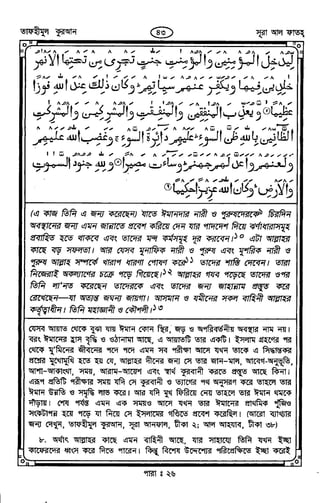 তাফহীমুল কুরআন
৪৩
সূরা আল ফাতহ
لِّيُدْخِلَ الْمُؤْمِنِينَ وَالْمُؤْمِنٰتِ جَنّٰتٍ تَجْرِي مِنْ تَحْتِهَا الْاَنْهٰرُ
خٰلِدِينَ فِيهَا وَيُكَفِّرَ عَنْهُمْ سَيِّاٰتِهِمْ وَكَانَ ذٰلِكَ عِنْدَ اللهِ فَوْزًا
عَظِيمًا ⓪ وَّيُعَذِّبَ الْمُنٰفِقِينَ وَالْمُنٰفِقٰتِ وَالْمُشْرِكِينَ وَالْمُشْرِكٰتِ
الظَّانِّينَ بِاللهِ ظَنَّ السَّوْءِ عَلَيْهِمْ دَائِرَةُ السَّوْءِ وَغَضِبَ اللهُ عَلَيْهِمْ
وَلَعَنَهُمْ وَاَعَدَّ لَهُمْ جَهَنَّمَ وَسَاءَتْ مَصِيرًا ⓪ وَلِلّٰهِ جُنُودُ السَّمٰوٰتِ
وَالْاَرْضِ وَكَانَ اللهُ عَزِيزًا حَكِيمًا ⓪
(এ কাজ তিনি এ জন্য করেছেন) যাতে ঈমানদার নারী ও পুরুষদেরকে চিরদিন
অবস্থানের জন্য এমন জান্নাতে প্রবেশ করিয়ে দেন যার পাদদেশ দিয়ে ঝর্ণাধারাসমূহ
প্রবাহিত হতে থাকবে এবং তাদের মন্দ কর্মসমূহ দূর করবেন।১০ এটা আল্লাহর
কাছে বড় সফলতা। আর যেসব মুনাফিক নারী ও পুরুষ এবং মুশরিক নারী ও
পুরুষ আল্লাহ সম্পর্কে খারাপ ধারণা পোষণ করে১১ তাদের শাস্তি দেবেন। তারা
নিজেরাই অকল্যাণের চক্রে পড়ে গিয়েছে।১২ আল্লাহর গযব পড়েছে তাদের ওপর
তিনি লা'নত করেছেন তাদেরকে এবং তাদের জন্য জাহান্নাম প্রস্তুত করে
রেখেছেন—যা অত্যন্ত জঘন্য জায়গা। আসমান ও যমীনের সকল বাহিনী আল্লাহর
কর্তৃত্বাধীন। তিনি মহাজ্ঞানী ও কৌশলী।১৩
যেসব আয়াত থেকে বুঝা যায় ঈমান কোন স্থির, জড় ও অপরিবর্তনীয় অবস্থার নাম নয়।
বরং ঈমানের হ্রাস বৃদ্ধি ও ওঠানামা আছে, এ আয়াতটি তার একটি। ইসলাম গ্রহণের পর
থেকে মু'মিনের জীবনের পদে পদে এমন সব পরীক্ষা আসে যখন তাকে এ সিদ্ধান্তকর
প্রশ্নের মুখোমুখি হতে হয় যে, আল্লাহর দীনের জন্য সে তার জান-মাল, আবেগ-অনুভূতি,
আশা-আকাংখা, সময়, আরাম-আয়েশ এবং স্বার্থ কুরবানী করতে প্রস্তুত আছে কিনা।
এরূপ প্রতিটি পরীক্ষার সময় যদি সে কুরবানী ও ত্যাগের পথ অনুসরণ করে তাহলে তার
ঈমান উন্নতি ও সমৃদ্ধি লাভ করে। আর যদি মুখ ফিরিয়ে নেয় তাহলে তার ঈমান থমকে
দাঁড়ায়। শেষ পর্যন্ত এমন এক সময়ও আসে যখন তার ঈমানের প্রাথমিক পুঁজিও
সংকটাপন্ন হয়ে পড়ে যা নিয়ে সে ইসলামের গণ্ডিতে প্রবেশ করেছিল। (আরো ব্যাখ্যার
জন্য দেখুন, তাফহীমুল কুরআন, সূরা আনফাল, টীকা ২; আল আহযাব, টীকা ৩৮)
৮. অর্থাৎ আল্লাহর কাছে এমন বাহিনী আছে, যার সাহায্যে তিনি যখন ইচ্ছা
কাফেরদের ধ্বংস করে দিতে পারেন। কিন্তু বিশেষ উদ্দেশ্যের পরিপ্রেক্ষিতে ইচ্ছা করেই
পারা : ২৬